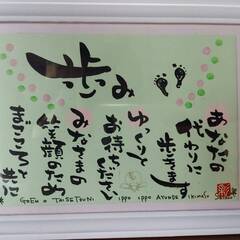 歩み
あなたの
代わりに
歩きます
ゆっくりと
お待ちください
みなさまの
笑顔のため
まごころと共に
GOEN O TAISETSUNI IPPO IPPO AYUNDE IKIMASU